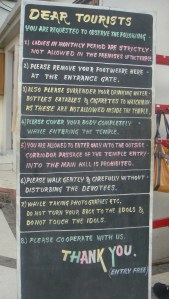 DEAR TOURISTS
YOU ARE REQUESTED TO OBSERVE THE FOLLOWING
1) LADIES IN MONTHLY PERIOD ARE STRICTLY
NOT ALLOWED IN THE PREMISES OF
2) PLEASE REMOVE YOUR FOOTWEARS HERE
AT THE ENTRANCE GATE.
3) ALSO PLEASE SURRENDER YOUR DRINKING WATER
BOTTLES EATABLES & CIGARETTES TO WATCHMAN
AS THESE ARE NOT ALLOWED INSIDE THE TEMPLE.
4) PLEASE COVER YOUR BODY COMPLETELY
WHILE ENTERING THE TEMPLE.
5) YOU ARE ALLOWED TO ENTER ONLY INTO THE OUTSIDE
CORRIDOR PASSAGE OF THE TEMPLE ENTRY
INTO THE MAIN HALL IS PROHIBITED.
6) PLEASE WALK GENTLY & CAREFULLY WITHOUT
DISTURBING THE DEVOTEES.
7) WHILE TAKING PHOTOGRAPHS ETC,
DO NOT TURN YOUR BACK TO THE IDOLS &
DO NOT TOUCH THE IDOLS.
8) PLEASE COOPERATE WITH US.
THANK YOU.
(ENTRY FREE)